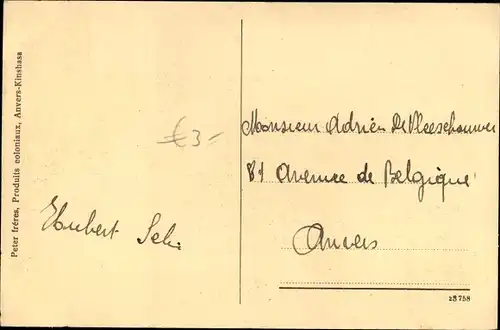 Peter fréres, Produits coloniaux, Anvers-Kinshasa
€3-
Hubert
Monsieur Adrien De Vleeschouwer
81 Avenue de Belgique
Anvers